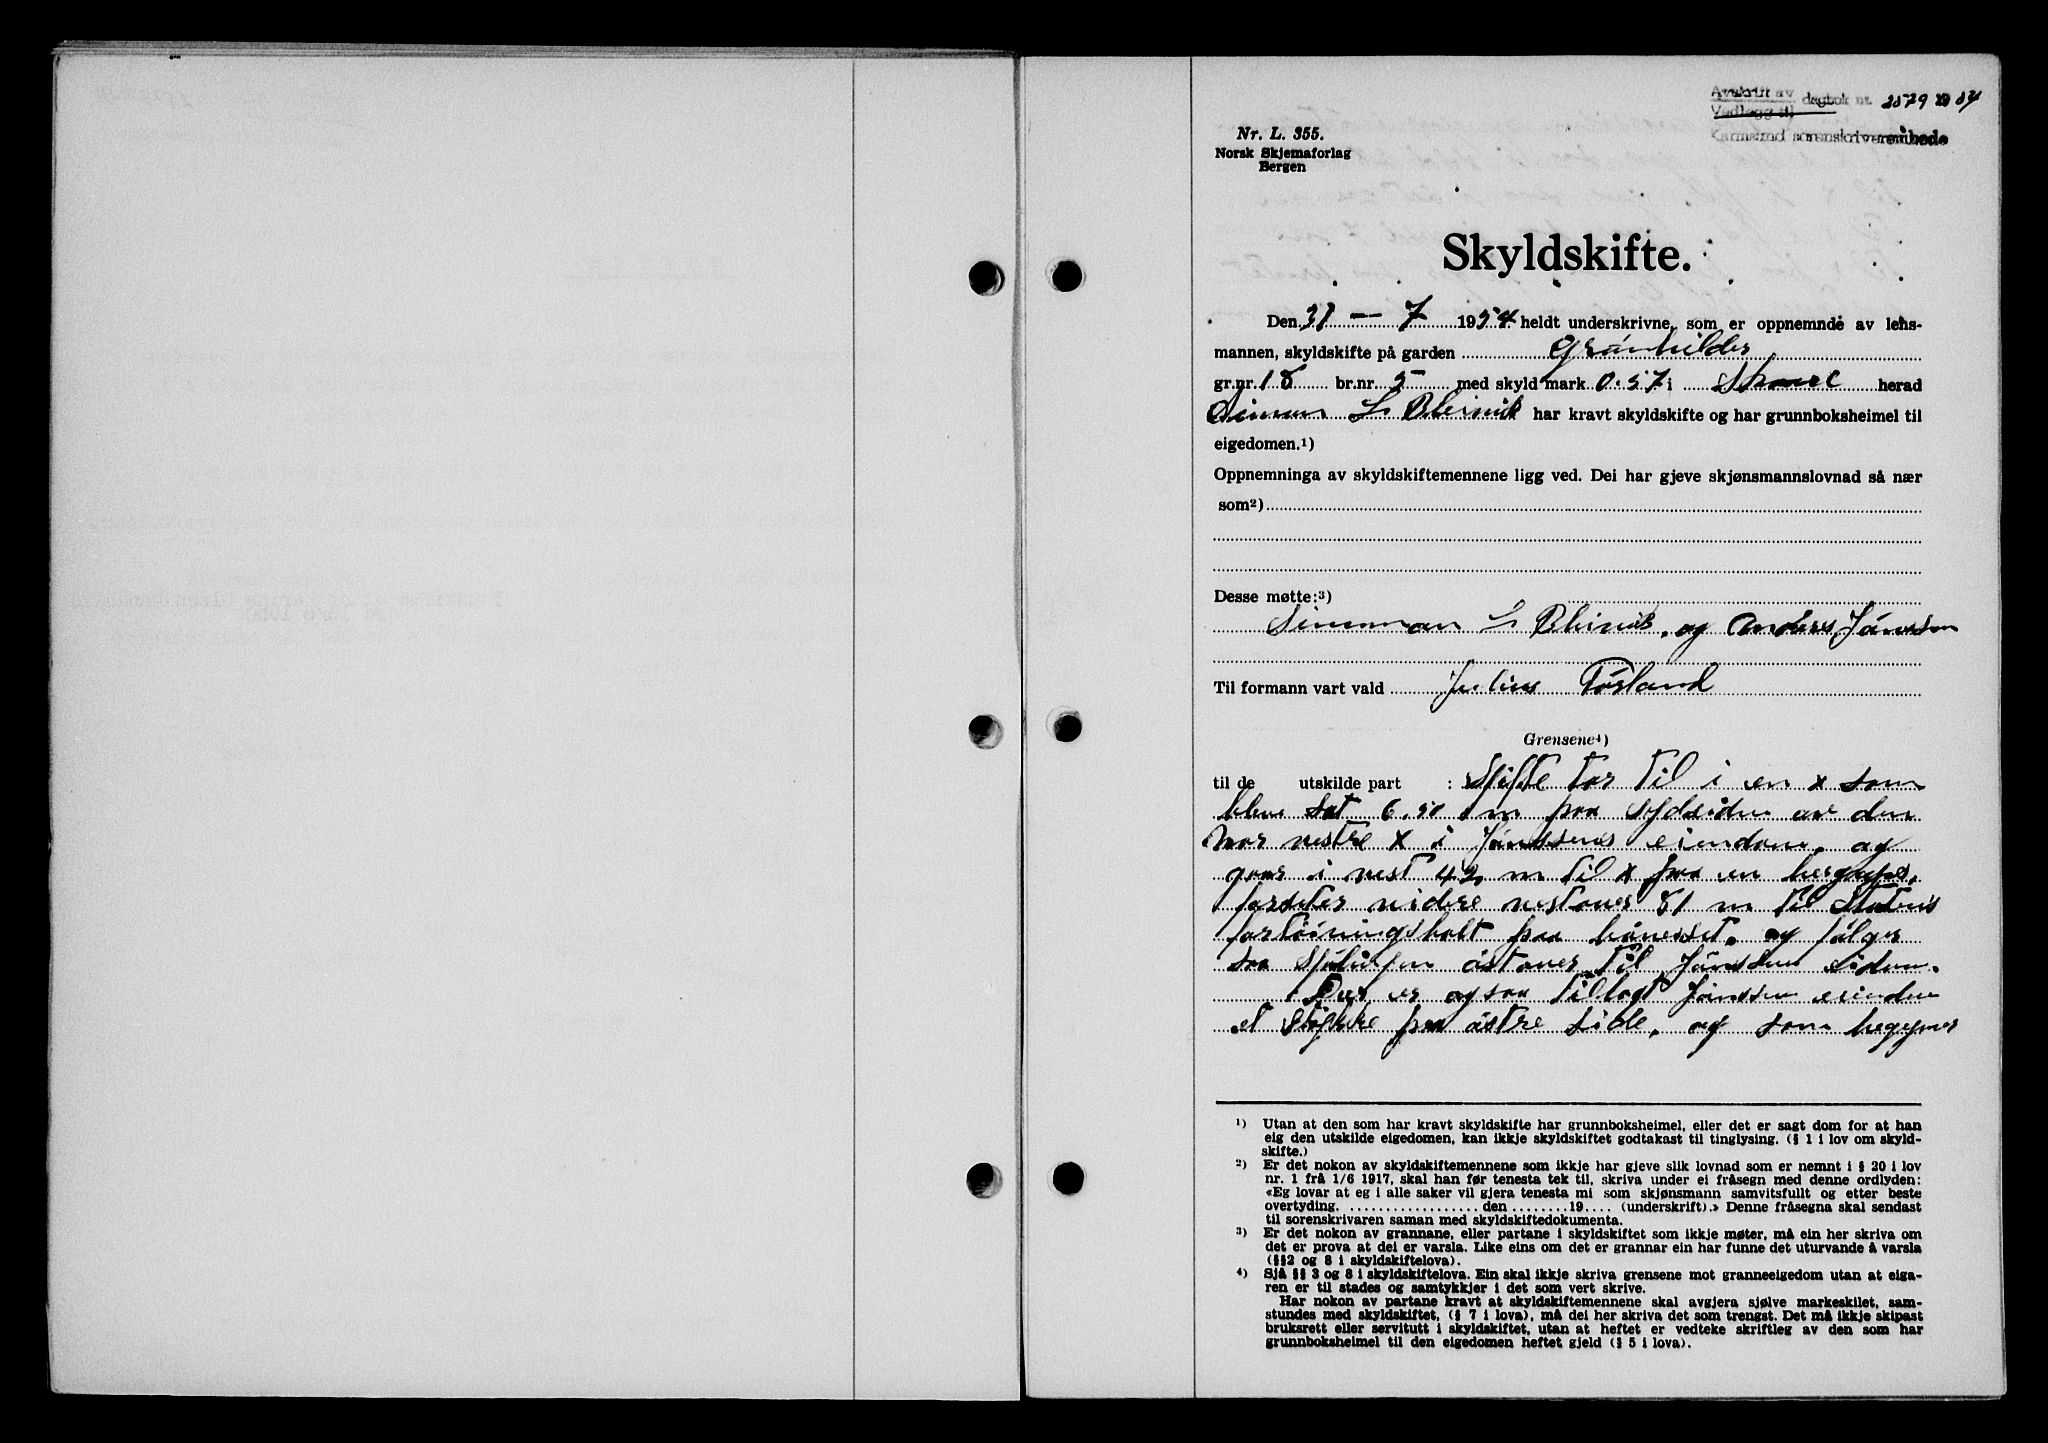 Avskrift av
Vedlegg til dagbok nr. 2579 1954
Karmsund sorenskriverembede
Nr. L. 355.
Norsk Skjemaforlag
Bergen
Skyldskifte.
Den 31 — 7 1954 heldt underskrivne, som er oppnemnde av lens-
mannen, skyldskifte på garden
gr.nr. 18 br.nr. 5 med skyld mark 0.57 i Skaare herad
L Bleivik har kravt skyldskifte og har grunnboksheimel til
eigedomen.1)
Oppnemninga av skyldskiftemennene ligg ved. Dei har gjeve skjønsmannslovnad så nær
som2)
Desse møtte:3)
Simman L Bleivik, og Anders Jánssen
Til formann vart vald Julius Førland
Grensene4)
til de utskilde part : Skifte tar til i en x som
blev sat 6.50 m fra sydsiden av den
nor vestre x i Jánssens eiendom, og
gaar i vest 42 m til x paa en
videre vestover 81 m til Statens
fortöiningsbolt paa og fölger
saa östover til Jánssens
Der er ogsaa tillagt Jánssen
et stykke paa östre side, og som begynner
1) Utan at den som har kravt skyldskifte har grunnboksheimel, eller det er sagt dom for at han
eig den utskilde eigedomen, kan ikkje skyldskiftet godtakast til tinglysing. (§ 1 i lov om skyld-
skifte.)
2) Er det nokon av skyldskiftemennene som ikkje har gjeve slik lovnad som er nemnt i § 20 i lov
nr. 1 frå 1/6 1917, skal han før tenesta tek til, skriva under ei fråsegn med denne ordlyden:
«Eg lovar at eg i alle saker vil gjera tenesta mi som skjønsmann samvitsfullt og etter beste
overtyding. .................... den ........ 19.... (underskrift).» Denne fråsegna skal sendast
til sorenskrivaren saman med skyldskiftedokumenta.
3) Er det nokon av grannane, eller partane i skyldskiftet som ikkje møter, må ein her skriva om
det er prova at dei er varsla. Like eins om det er grannar ein har funne det uturvande å varsla
(§§2 og 8 i skyldskiftelova).
4) Sjå §§ 3 og 8 i skyldskiftelova. Ein skal ikkje skriva grensene mot granneeigedom utan at eiga-
ren er til stades og samtykkjer i det som vert skrive.
Har nokon av partane kravt at skyldskiftemennene skal avgjera sjølve markeskilet, sam-
stundes med skyldskiftet, (§ 7 i lova), må dei her skriva det som trengst. Det må ikkje skipast
bruksrett eller servitutt i skyldskiftet, utan at heftet er vedteke skriftleg av den som har
grunnboksheimel til den eigedomen heftet gjeld (§ 5 i lova).